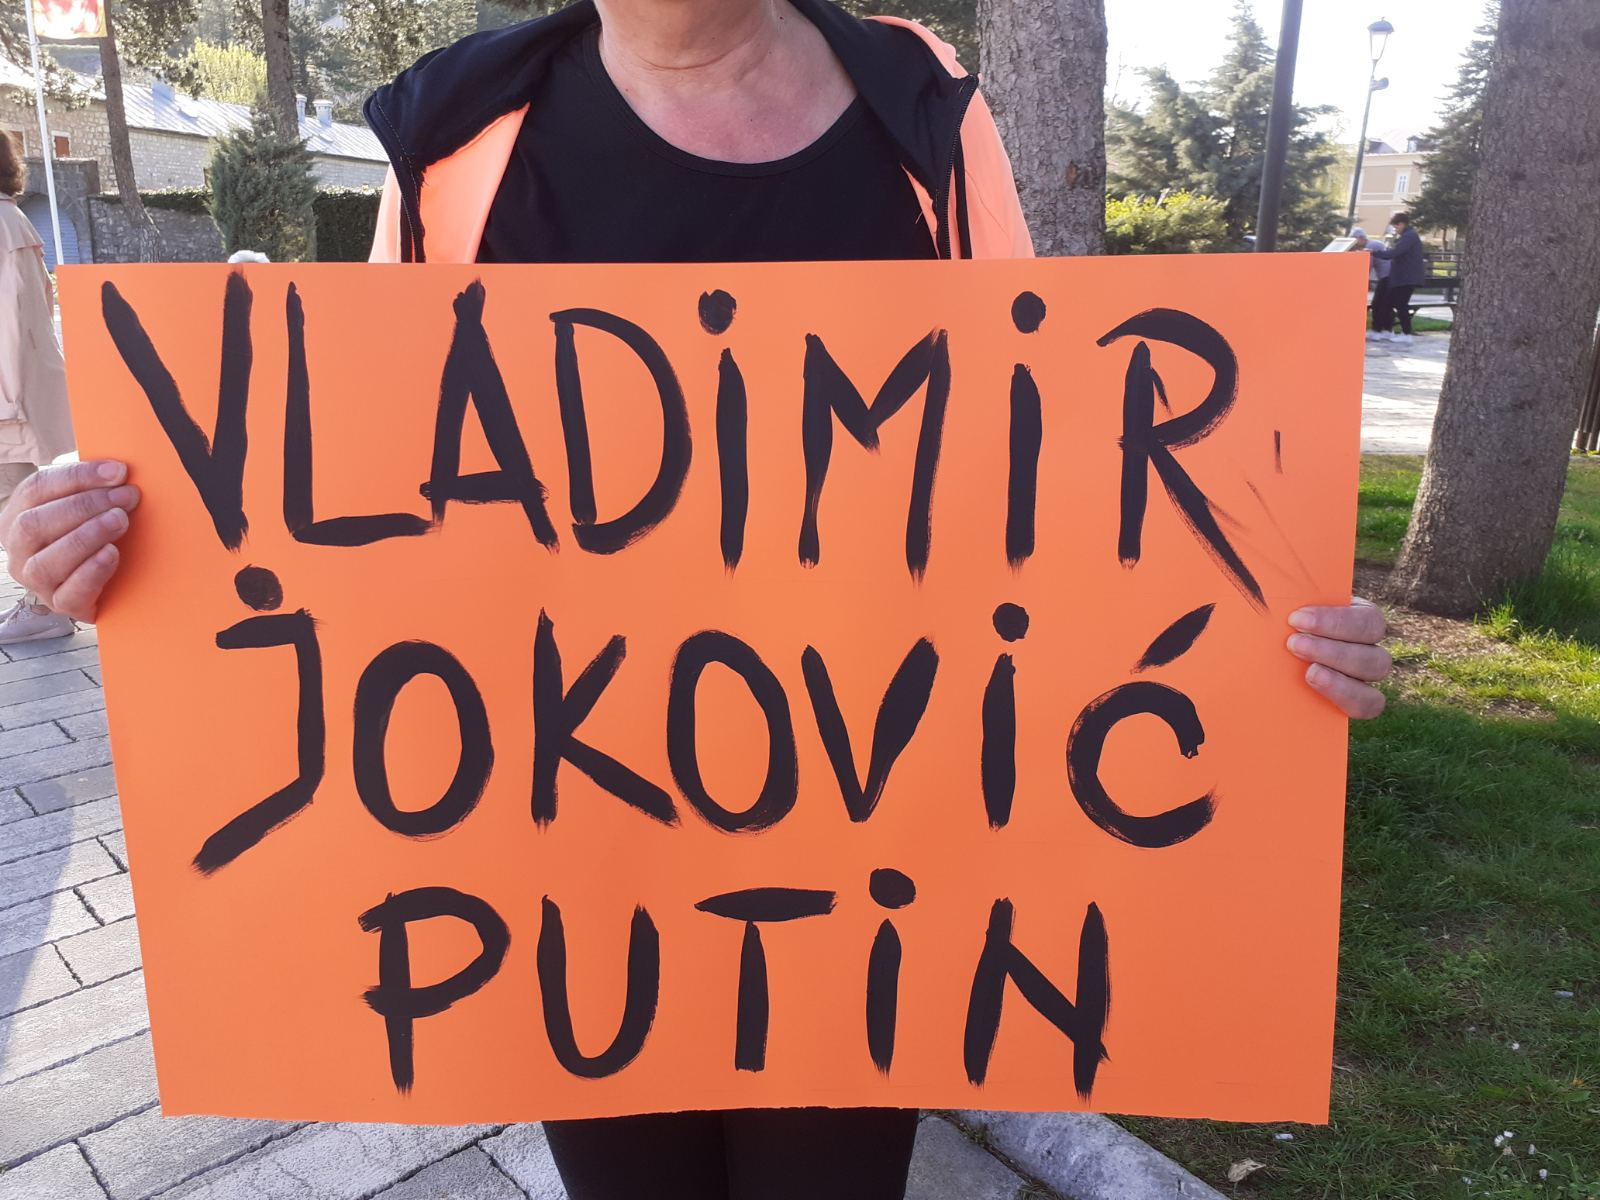 VLADiMiR
JOKOViĆ
PUTiN